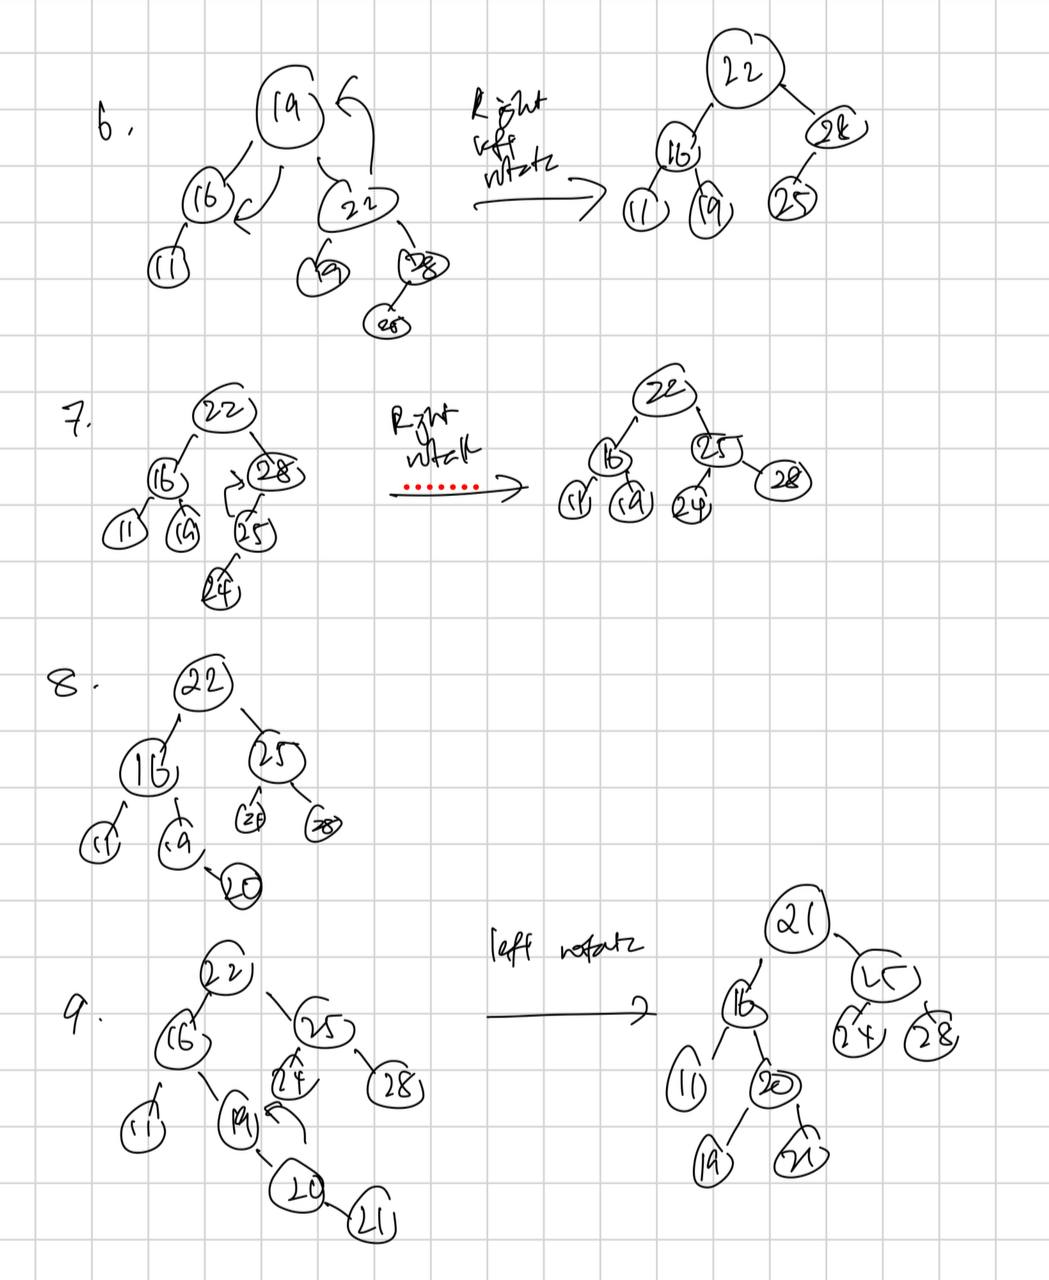 6.
19
16
22
11
19
28
25
Right
left
rotate
22
16
28
11
19
25
7.
22
16
28
11
19
25
24
Right
rotate
22
16
25
11
19
24
28
8.
22
16
25
11
19
28
20
9.
22
16
25
11
19
24
28
20
21
left rotate
21
16
25
11
20
24
28
19
21